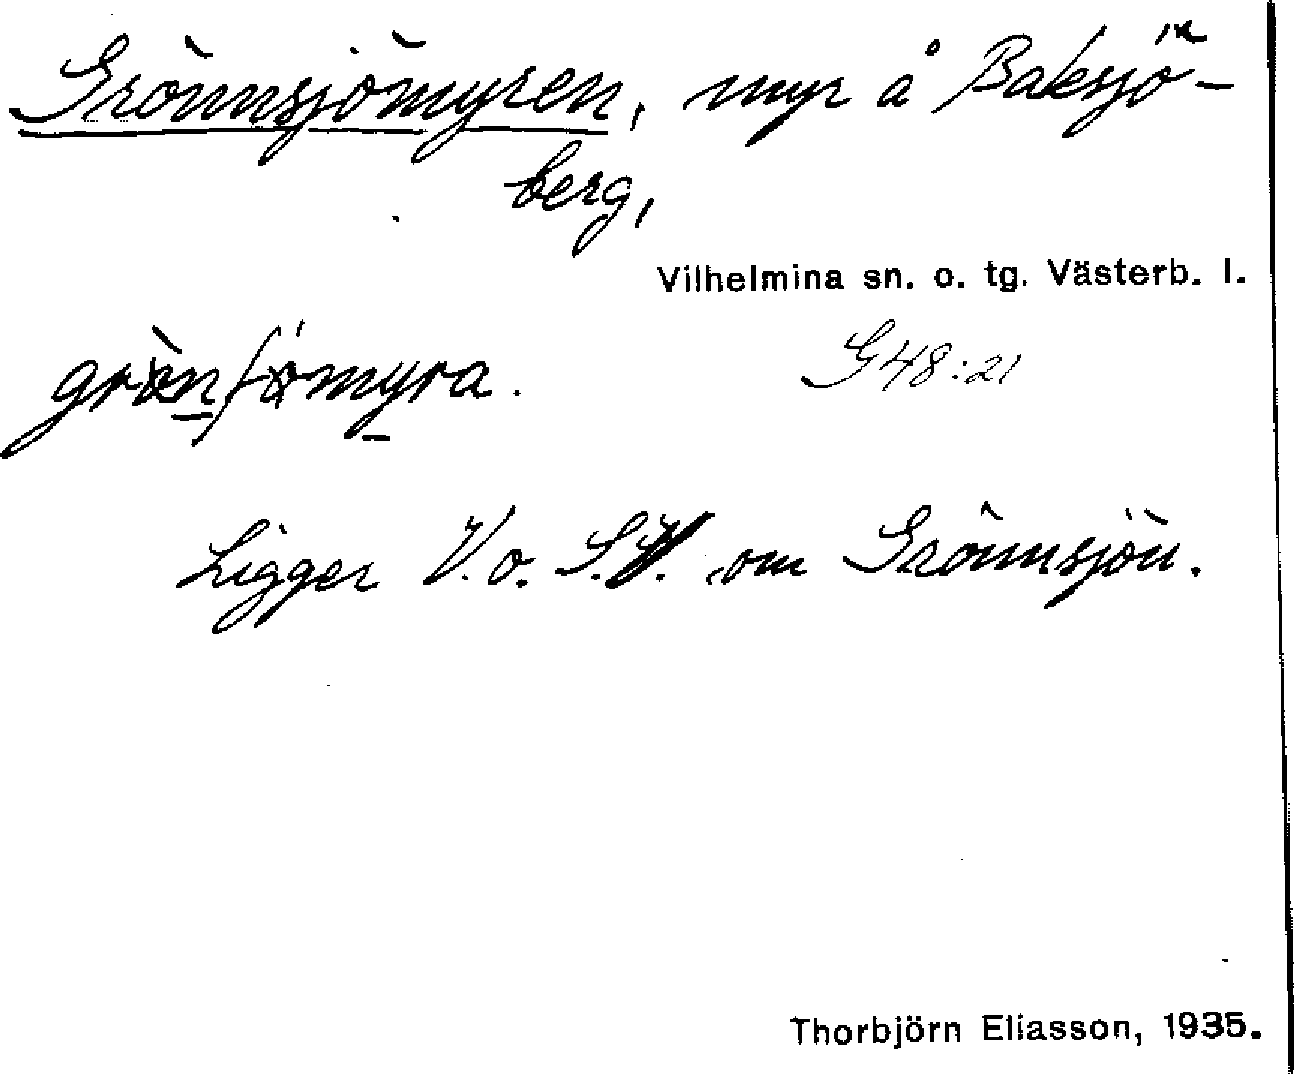 Grönnsjömyren, myr å Baksjö-
berg,
Vilhelmina sn. o. tg. Västerb. l.
G48:21
Ligger V. o. S.V. om Grönnsjön.
Thorbjörn Eliasson, 1935.